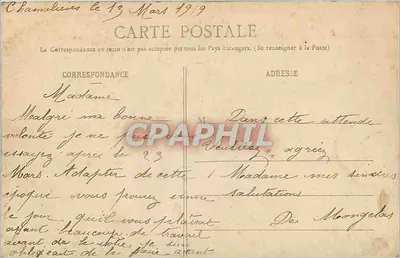 Chamalières le 13 Mars 19 9
CARTE POSTALE
La Correspondance au recto n'est pas acceptée par tous les Pays Étrangers. (Se renseigner à la Poste)
CORRESPONDANCE
Madame
Malgré ma bonne
volonté je ne puis
essayer après le 23
Mars. Adapter de cette
époque vous pouvez venir
le jour qu'il vous plairait
ayant beaucoup de travail
avant de je suis
obligeait de le faire avant
ADRESSE
M Dans cette attende
Veuillez agréez
Madame mes sincères
salutations
De
CPAPHIL